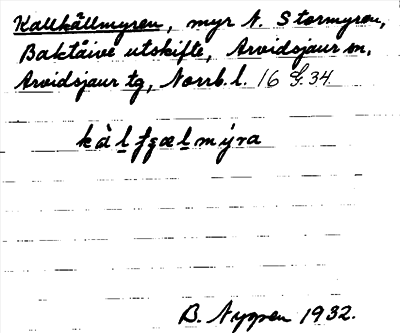 Kallkällmyren, myr N. Stormyren,
Baktåive utskifte, Arvidsjaur sn,
Arvidsjaur tg, Norrb. l. 16 G. 34
B. Nygren 1932.